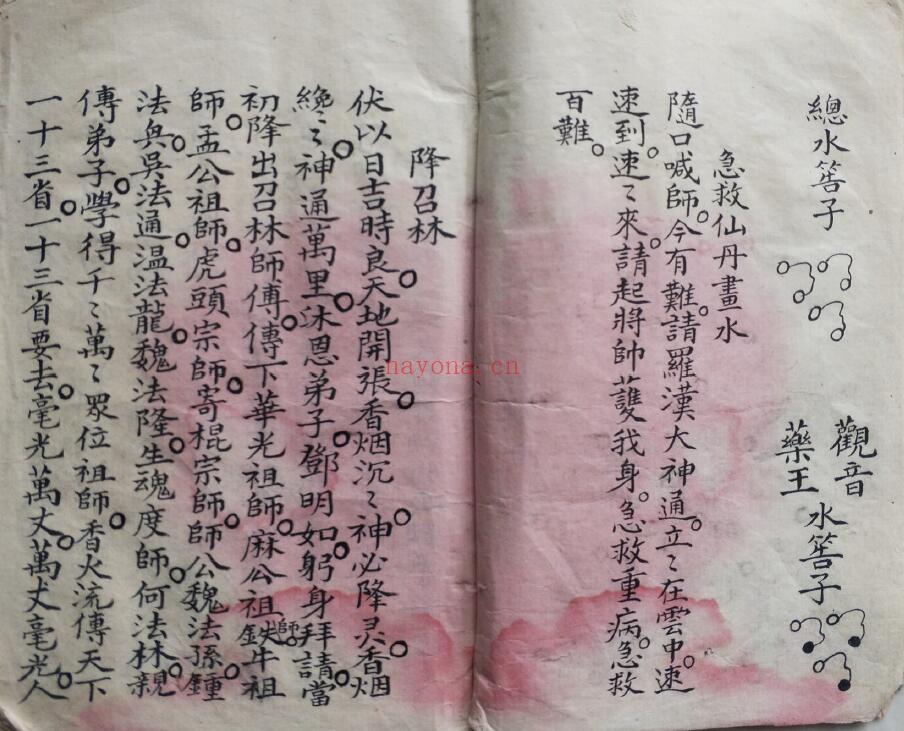 總水筶子
觀音
藥王
水筶子
急救仙丹畫水
隨口喊師。今有難。請羅漢大神通。立〻在雲中。速
速到。速〻來。請起將帥護我身。急救重病。急救
百難。
降召林
伏以日吉時良。天地開張。香烟沉〻。神必降灵。香烟
纔〻。神通萬里。沐恩弟子。鄧明如。躬身拜請。當
初降出召林師傅。傳下華光祖師。麻公祖師。鉄牛祖
師。孟公祖師。虎頭宗師。寄棍宗師。師公魏法孫。鍾
法兵。吳法通。温法龍。魏法隆。生魂度師。何法林。親
傳弟子。學得千〻萬〻。眾位祖師。香火流傳天下
一十三省。一十三省要去。毫光萬丈。萬丈毫光。人
nayona.cn